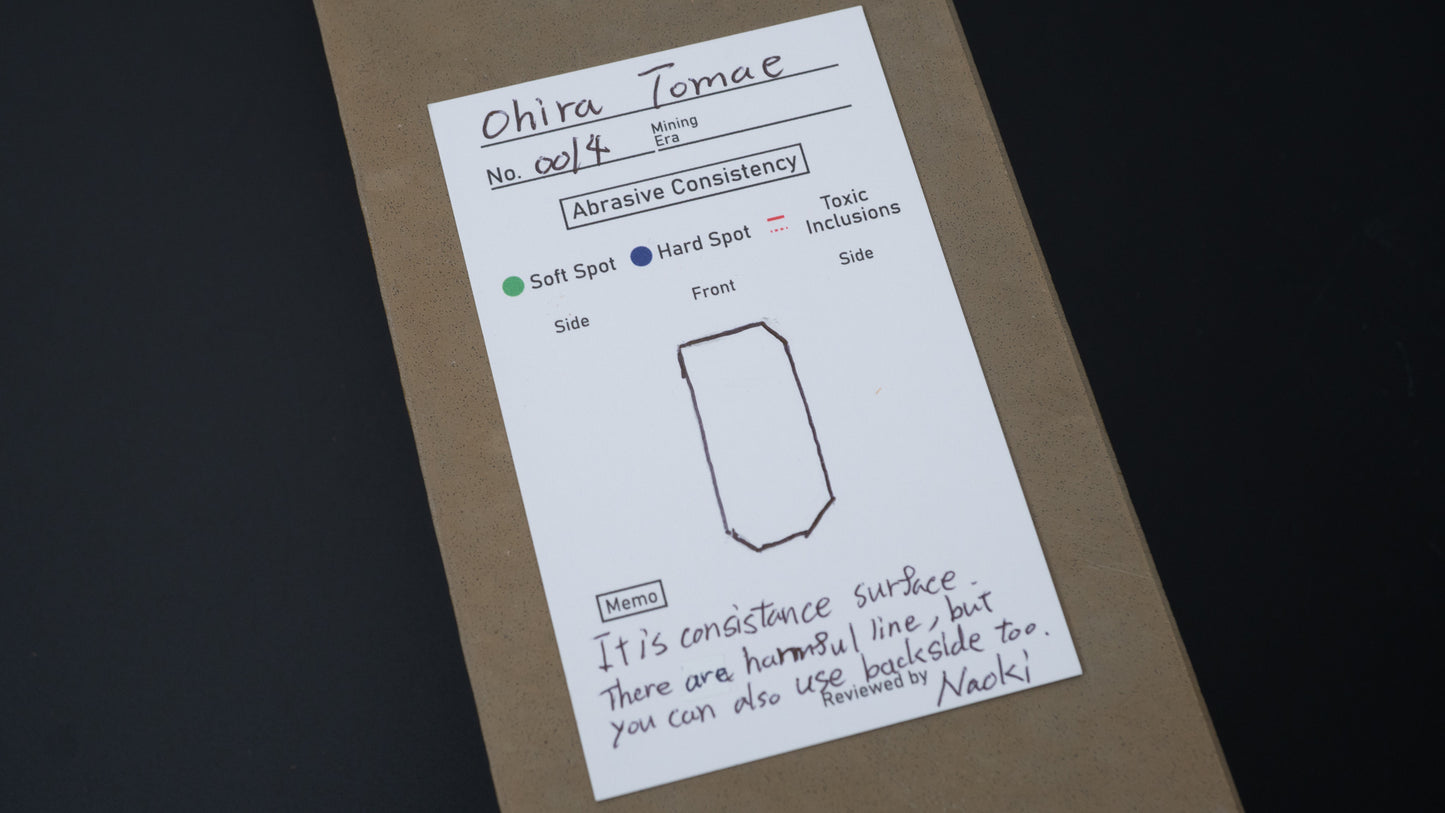 Ohira Tomae
No. 0014 Mining Era
Abrasive Consistency
Soft Spot Hard Spot Toxic Inclusions
Side Front Side
Memo
It is consistance surface.
There are harmful line, but
you can also use backside too.
Reviewed by Naoki